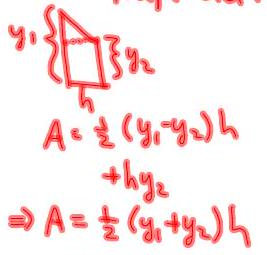 y₁
y₂
h
A = ½ (y₁-y₂)h
+hy₂
⇒ A = ½ (y₁+y₂)h